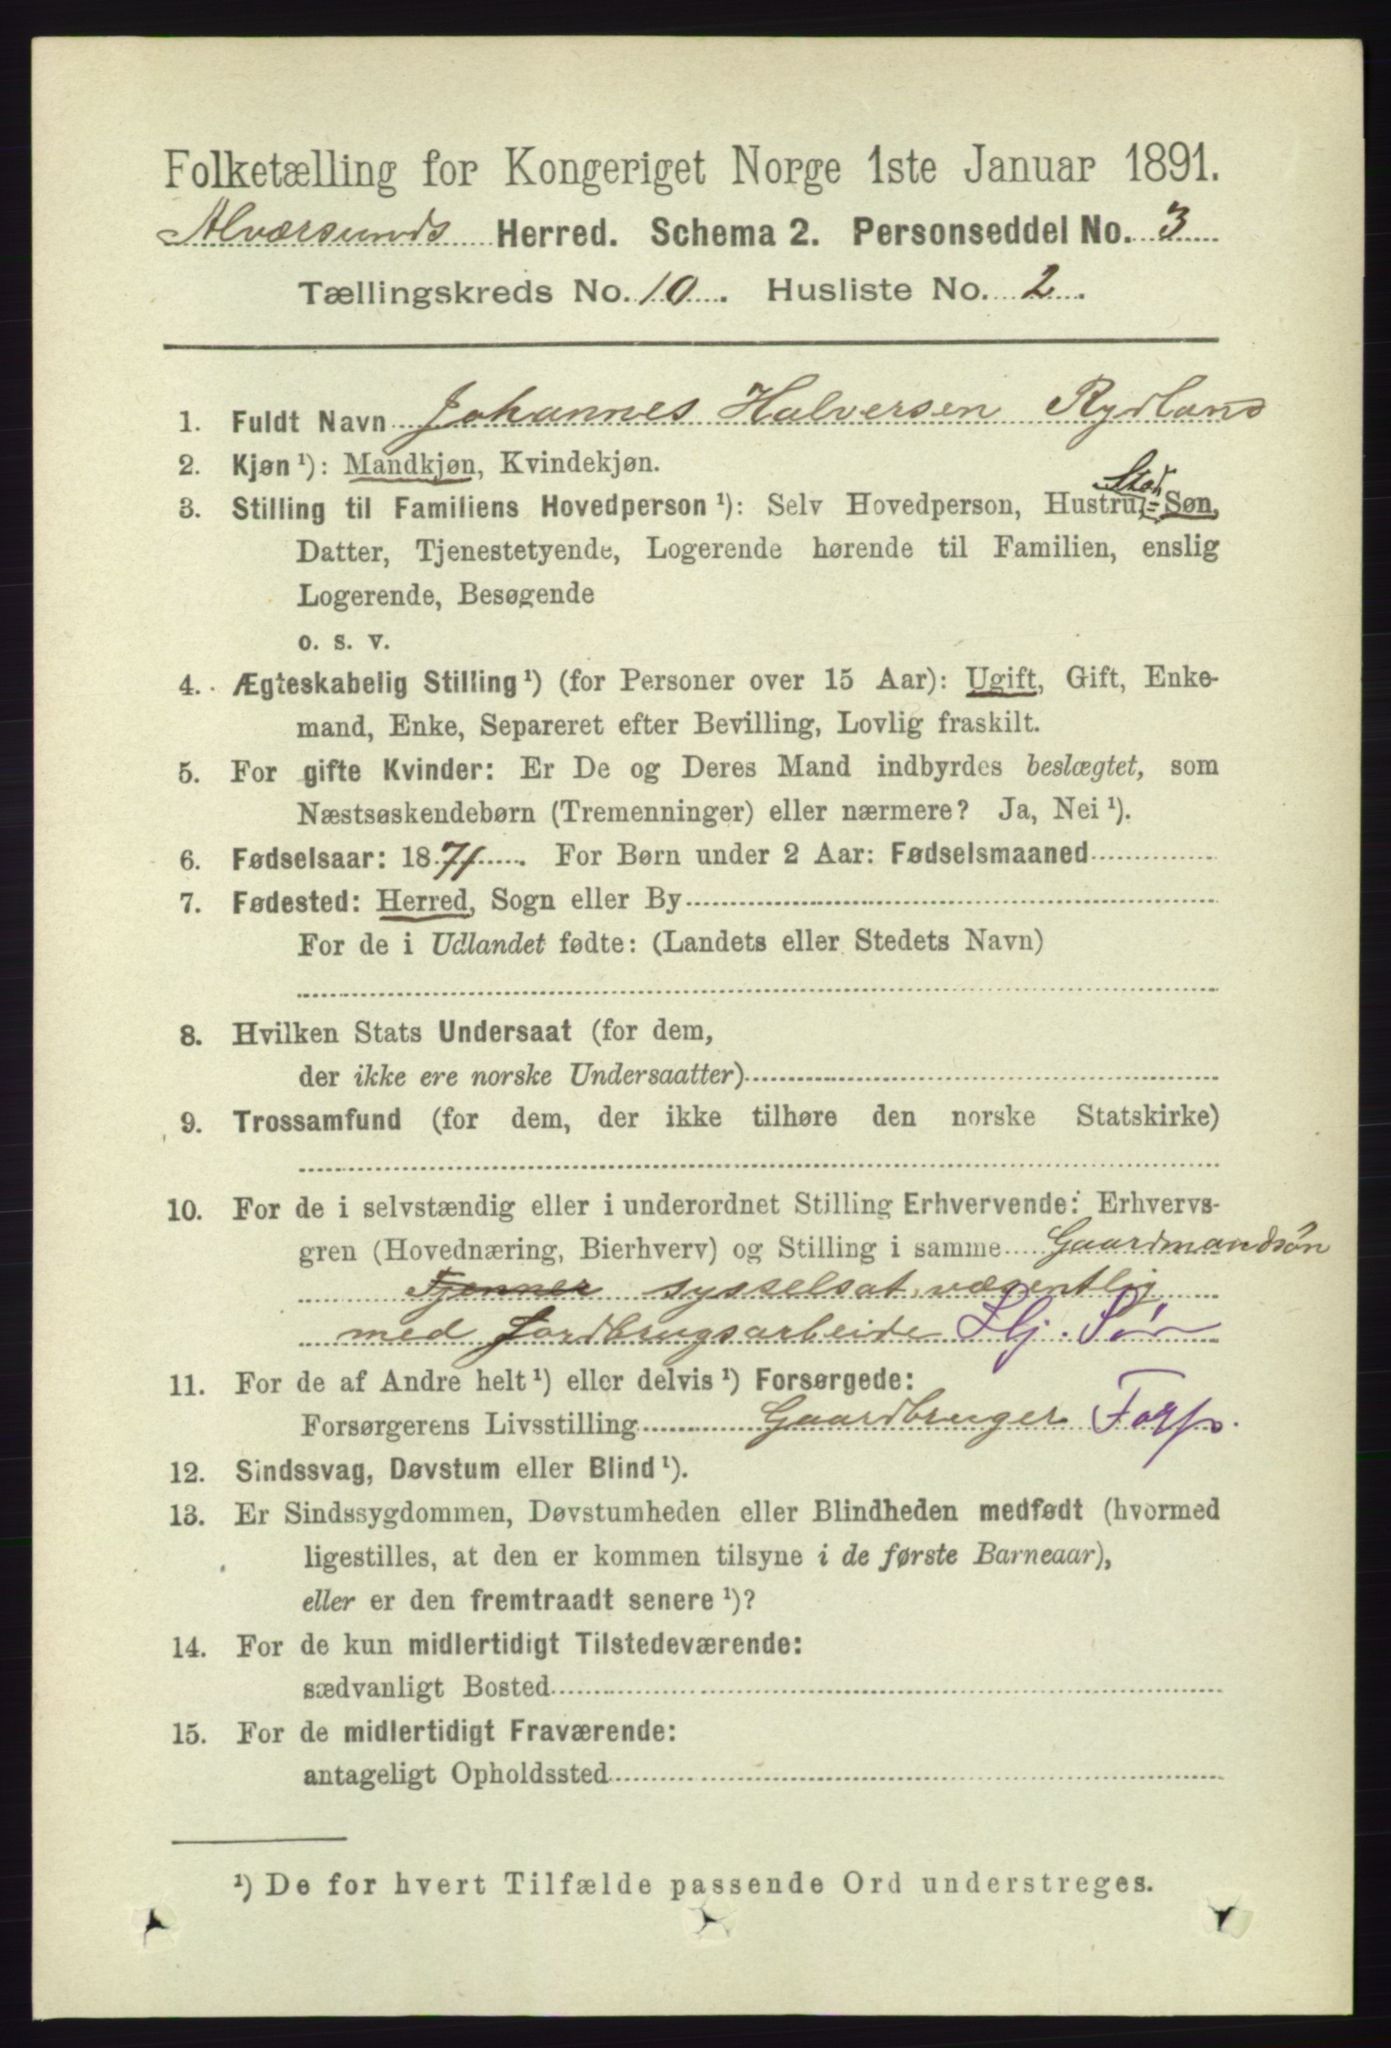 Folketælling for Kongeriget Norge 1ste Januar 1891.
Alværsunds Herred. Schema 2. Personseddel No. 3
Tællingskreds No. 10. Husliste No. 2.
1. Fuldt Navn Johannes Halversen Rydland
2. Kjøn ¹): Mandkjøn, Kvindekjøn.
Sted
3. Stilling til Familiens Hovedperson ¹): Selv Hovedperson, Hustru, Søn,
Datter, Tjenestetyende, Logerende hørende til Familien, enslig
Logerende, Besøgende
o. s. v.
4. Ægteskabelig Stilling ¹) (for Personer over 15 Aar): Ugift, Gift, Enke-
mand, Enke, Separeret efter Bevilling, Lovlig fraskilt.
5. For gifte Kvinder: Er De og Deres Mand indbyrdes beslægtet, som
Næstsøskendebørn (Tremenninger) eller nærmere? Ja, Nei ¹).
6. Fødselsaar: 1871. For Børn under 2 Aar: Fødselsmaaned
7. Fødested: Herred, Sogn eller By
For de i Udlandet fødte: (Landets eller Stedets Navn)
8. Hvilken Stats Undersaat (for dem,
der ikke ere norske Undersaatter)
9. Trossamfund (for dem, der ikke tilhøre den norske Statskirke)
10. For de i selvstændig eller i underordnet Stilling Erhvervende: Erhvervs-
gren (Hovednæring, Bierhverv) og Stilling i samme Gaardmandsøn
Tjenner sysselsat væsentlig
med Jordbrugsarbeide Hj. Søn
11. For de af Andre helt ¹) eller delvis ¹) Forsørgede:
Forsørgerens Livsstilling Gaardbruger Forp.
12. Sindssvag, Døvstum eller Blind ¹).
13. Er Sindssygdommen, Døvstumheden eller Blindheden medfødt (hvormed
ligestilles, at den er kommen tilsyne i de første Barneaar),
eller er den fremtraadt senere ¹)?
14. For de kun midlertidigt Tilstedeværende:
sædvanligt Bosted
15. For de midlertidigt Fraværende:
antageligt Opholdssted
¹) De for hvert Tilfælde passende Ord understreges.